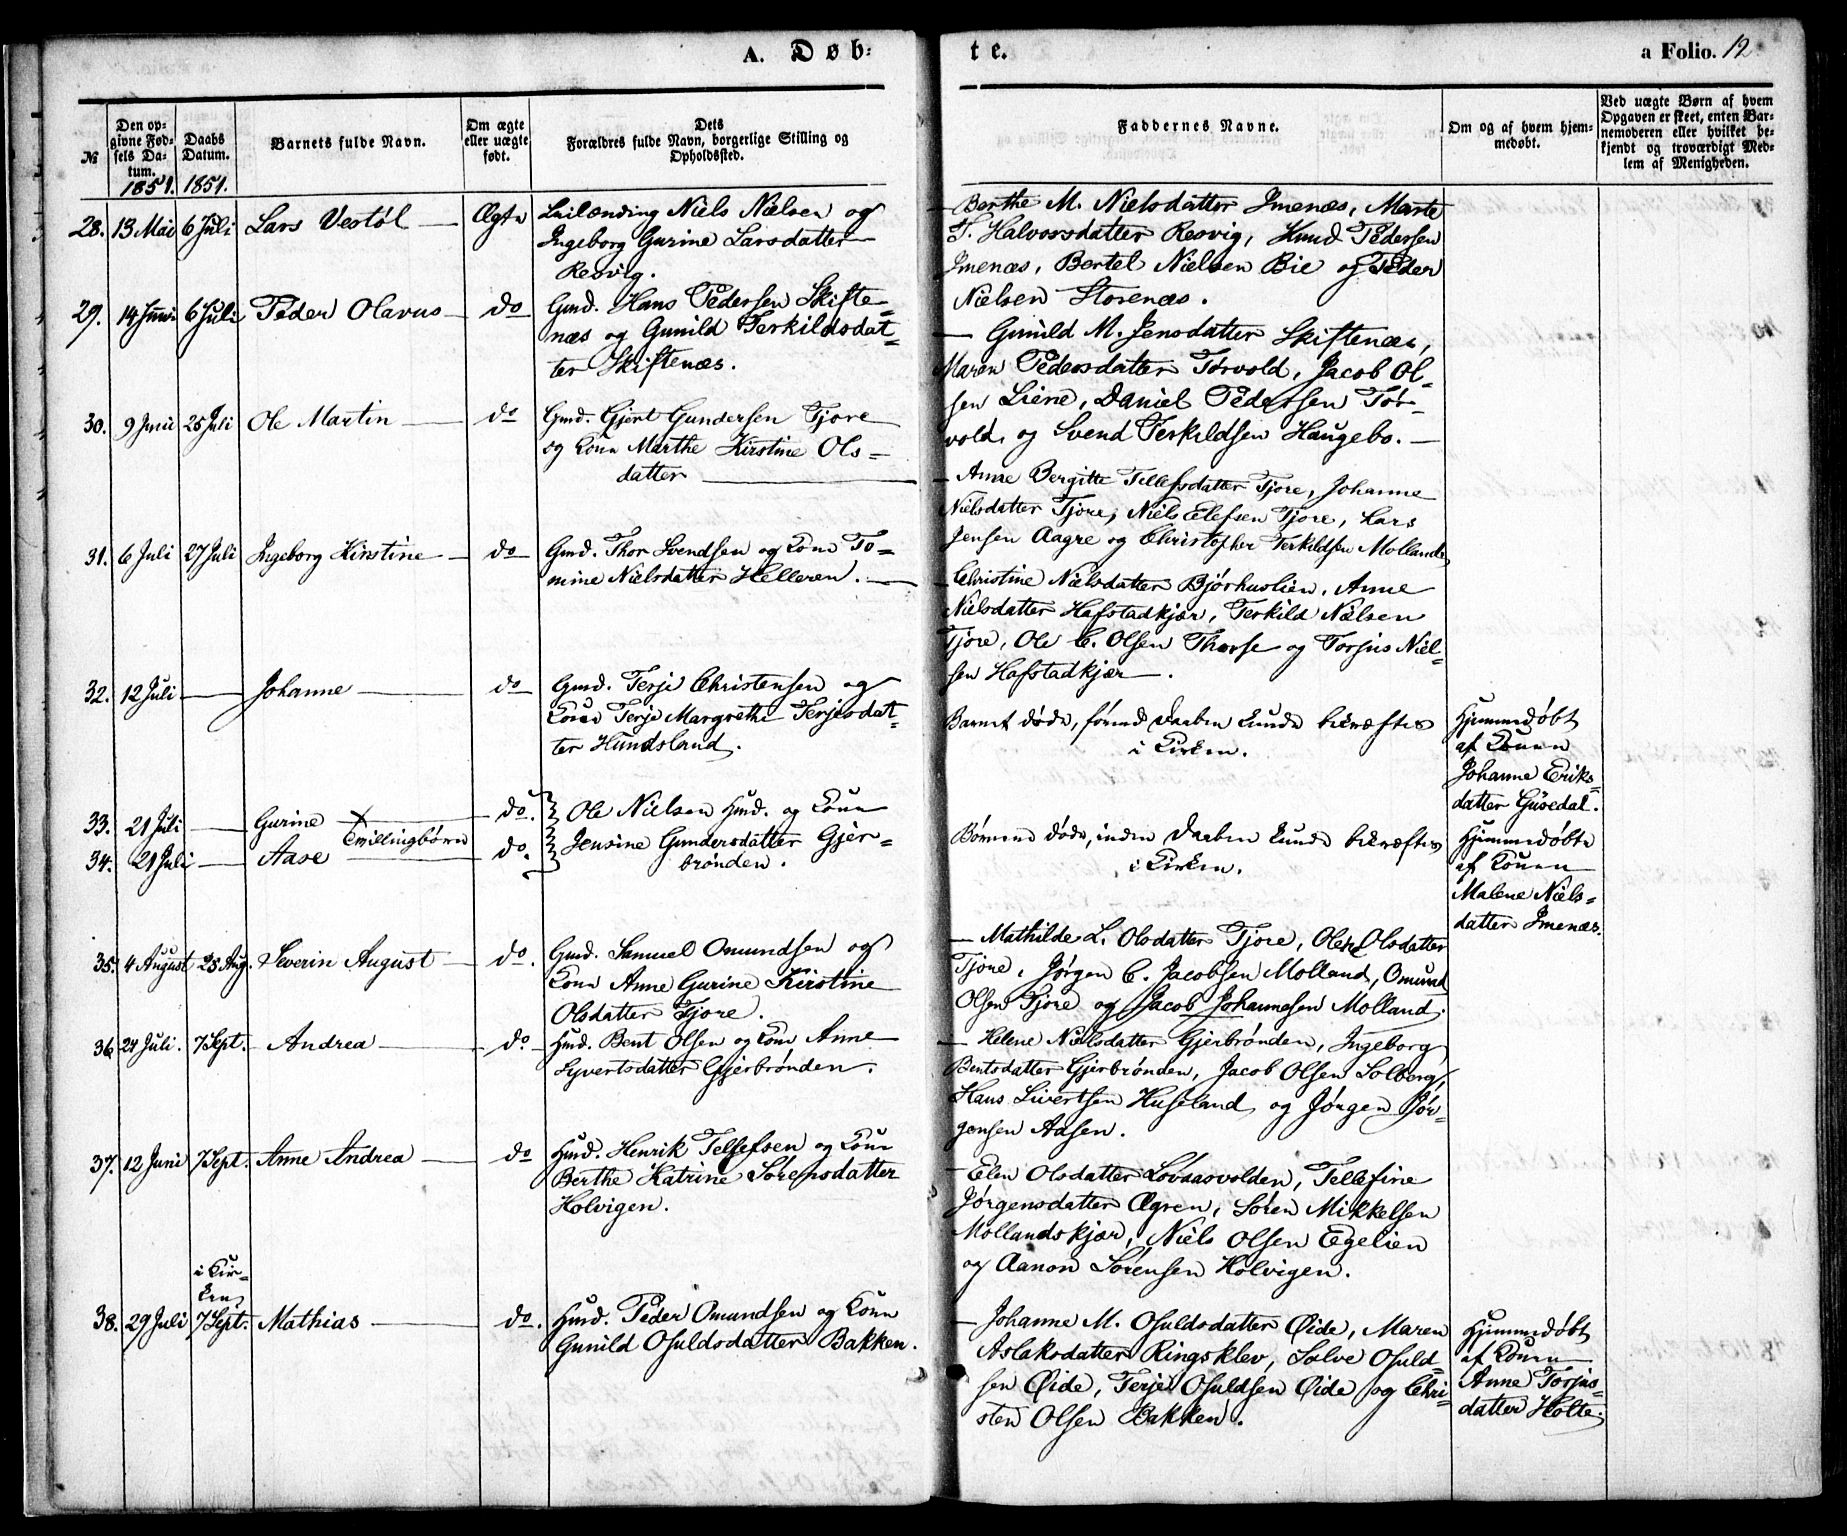 A. Døb-
te.
a Folio. 12
№
Den op-
givne Fød-
sels Da-
tum.
1851.
Daabs
Datum.
1851.
Barnets fulde Navn.
Om ægte
eller uægte
født.
Dets
Forældres fulde Navn, borgerlige Stilling og
Opholdssted.
Faddernes Navne.
Om og af hvem hjem-
medøbt.
Ved uægte Børn af hvem
Opgaven er skeet, enten Bar-
nemoderen eller hvilket be-
kjendt og troværdigt Med-
lem af Menigheden.
28. 13 Mai 6 Juli Lars Vestøl Ægte Leilænding Niels Nielsen og
Ingeborg Gurine Larsdatter
Resvig.
Berthe M. Nielsdatter Imenæs, Marte
T. Halvorsdatter Resvig, Knud Pedersen
Imenæs, Bertel Nielsen Bie og Peder
Nielsen Storenæs.
29. 14 Juni 6 Juli Peder Olavus do Gmd. Hans Pedersen Skifte-
næs og Gunild Terkildsdat-
ter Skiftenæs.
Gunild M. Jensdatter Skiftenæs,
Maren Pedersdatter Tørvold, Jacob Ol-
sen Liene, Daniel Pedersen Tør-
vold, og Svend Terkildsen Haugebo.
30. 9 Juni 25 Juli Ole Martin do Gmd. Gjert Gundersen Tjore
og Kone Marthe Kirstine Ols-
datter
Anne Bergitte Tellefsdatter Tjore, Johanne
Nielsdatter Tjore, Niels Elefsen Tjore, Lars
Jensen Aagre og Christopher Terkildsen Molland
31. 6 Juli 27 Juli Ingeborg Kirstine do Gmd. Thor Svendsen og Kone To-
mine Nielsdatter Helleren.
Christine Nielsdatter Bjørhuslien, Anne
Nielsdatter Hafstadkjær, Terkild Nielsen
Tjore, Ole C. Olsen Thorse og Torjus Niel-
sen Hafstadkjær.
32. 12 Juli Johanne do Gmd. Terje Christensen og
Kone Terje Margrethe Terjesdat-
ter Hundsland.
Barnet døde, førend Daaben kunde bekræftes
i Kirken.
Hjemmedøbt
af Konen
Johanne Eriks-
datter Gusedal.
33. 21 Juli Gurine do.
Tvillingbørn
34. 21 Juli Aase do.
Ole Nielsen Hmd. og Kone
Jensine Gundersdatter Gjer-
brønden.
Børnene døde, inden Daaben kunde bekræftes
i Kirken.
Hjemmedøbte
af Konen
Malene Niels-
datter Imenæs.
35. 4 August 28 Aug. Severin August do. Gmd. Samuel Omundsen og
Kone Anne Gurine Kirstine
Olsdatter Tjore.
Mathilde L. Olsdatter Tjore, Olene Olsdatter
Tjore, Jørgen C. Jacobsen Molland, Omund
Olsen Tjore og Jacob Johannesen Molland.
36 24 Juli. 7 Sept. Andrea do Hmd. Bent Olsen og Kone Anne
Syvertsdatter Gjerbrønden.
Helene Nielsdatter Gjerbrønden, Ingeborg
Bentsdatter Gjerbrønden, Jacob Olsen Solberg,
Hans Sivertsen Huseland og Jørgen Jør-
gensen Aasen.
37. 12 Juni 7 Sept. Anne Andrea do Hmd. Henrik Tellefsen og Kone
Berthe Katrine Sørensdatter
Holvigen.
Elen Olsdatter Løvaasvolden, Tellefine
Jørgensdatter Ægren, Søren Mikkelsen
Mollandskjær, Niels Olsen Egelien
og Aanon Sørensen Holvigen.
i Kir-
ken
38. 29 Juli 7 Sept. Mathias do. Hmd. Peder Omundsen og Kone
Gunild Osuldsdatter Bakken.
Johanne M. Osuldsdatter Øide, Maren
Aslaksdatter Ringsklev, Salve Osuld-
sen Øide, Terje Osuldsen Øide og Chri-
sten Olsen Bakken.
Hjemmedøbt
af Konen
Anne Torjus-
datter Holte.